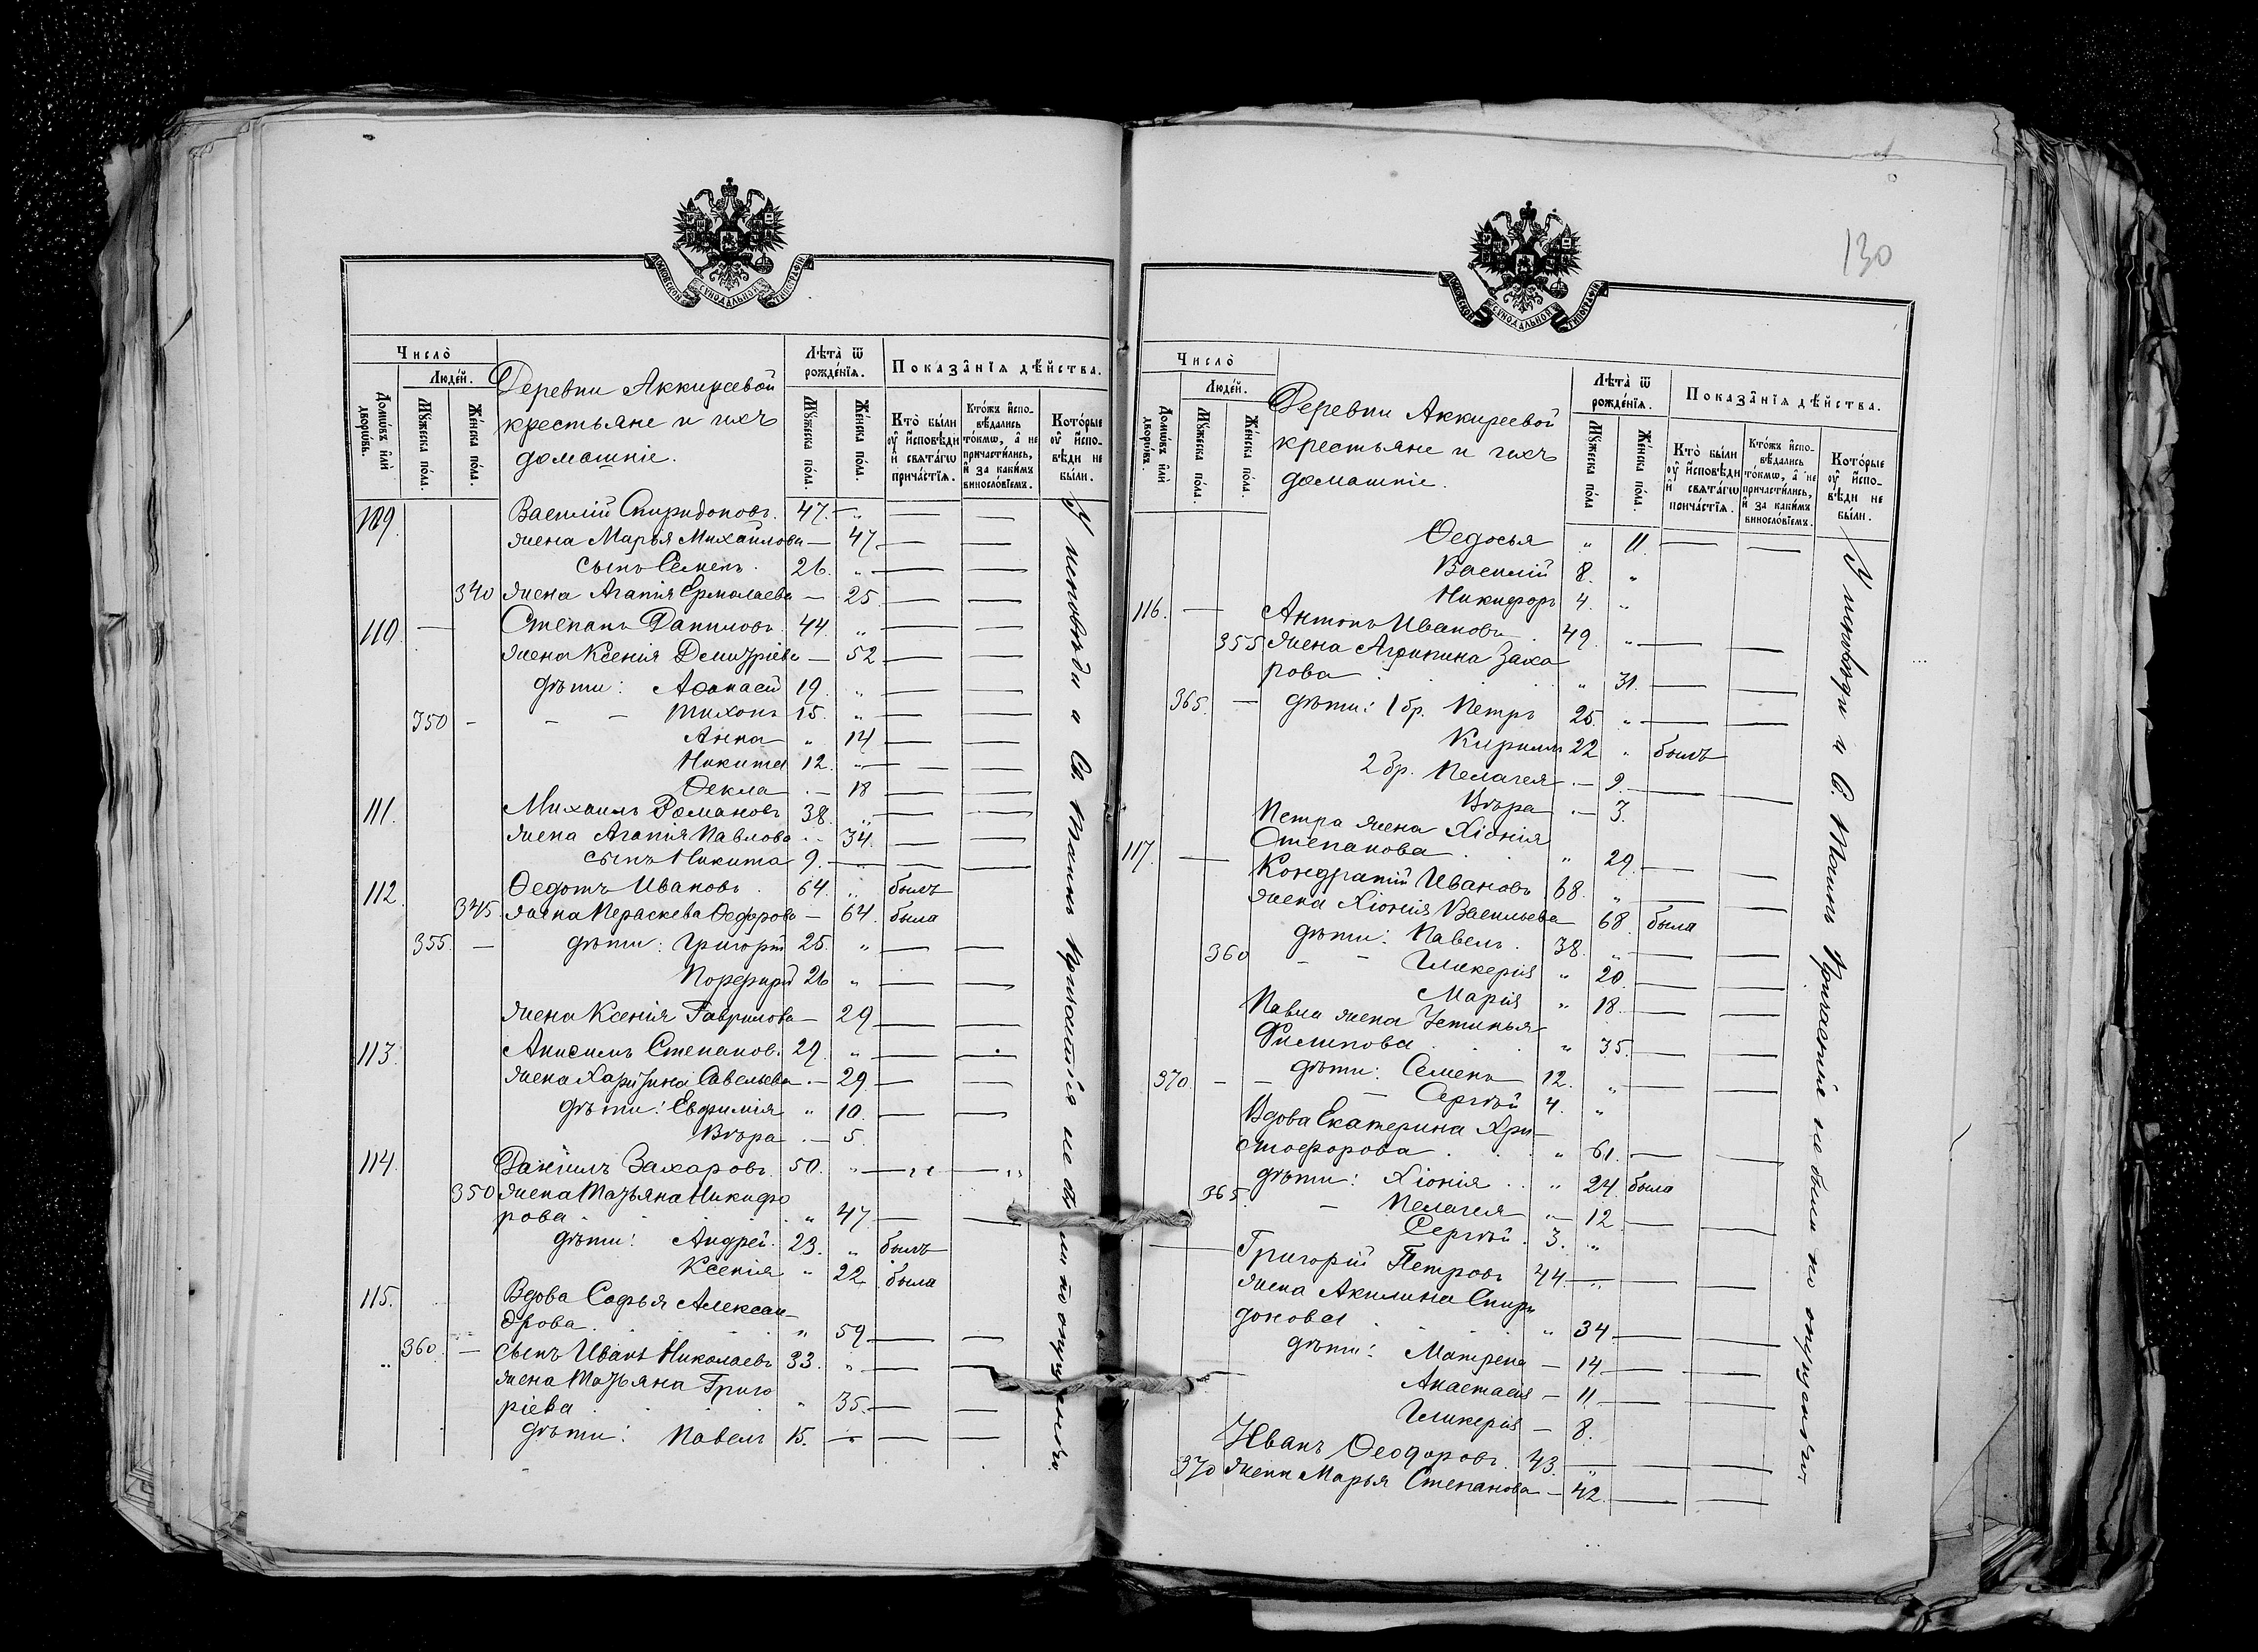 МОСКОВСКОЙ СѴНОДАЛЬНОЙ ТИПОГРАФІИ
Число̀
Людей.
Домѡвъ илѝ дворѡвъ.
Мꙋжеска пола.
Женска пола.
Деревни Аккиреевой
крестьяне и ихъ
домашніе.
Лѣта̀ ѿ рожденїѧ.
Мꙋжеска пола.
Женска пола.
Показанїѧ дѣйства.
Кто̀ были ᲂу҆ исповѣди и҆ свѧтагѡ причастїѧ.
Кто́жъ исповѣдались то́кмѡ, а҆ не причастились, и҆ за какимъ винословїемъ.
Которые ᲂу҆ исповѣди не были.
109. Василій Спиридоновъ. 47. „ — —
жена Марья Михайлова — 47 — —
сынъ Семенъ. 26. „ — —
340 жена Агапія Ермолаева — 25 — —
110. — Степанъ Даниловъ 44. „ — —
жена Ксенія Димитріева — 52 — —
дѣти: Аѳанасій 19. „ — —
350 — Тихонъ 15. „ — —
Анна „ 14 — —
Никита 12. „ — —
Ѳекла — 18 — —
111. Михаилъ Романовъ 38. „ — —
жена Агапія Павлова — 34. — —
сынъ Никита 9. — — —
112. Ѳедотъ Ивановъ. 64. „ былъ
345. жена Параскева Ѳедорова — 64. была
355. — дѣти: Григорій 25. „ — —
Порфирій 26 „ — —
жена Ксенія Гаврилова — 29 — —
113. Анисимъ Степанов. 29. „ — —
жена Харитина Савельева. — 29. — —
дѣти: Евфимія „ 10. — —
Вѣра — 5.
114. Даніилъ Захаровъ. 50. „ — —
350 жена Татьяна Никифо
рова. „ 47 — —
дѣти: Андрей. 23. „ былъ
Ксенія „ 22. была
115. Вдова Софья Алексан
дрова. „ 59 — —
360. — сынъ Иванъ Николаевъ 33. „ — —
жена Татьяна Григо
ріева „ 35. — —
дѣти: Павелъ 15. — — —
У исповѣди и Св. Таинъ причастія не были по опущенію.
130
МОСКОВСКОЙ СѴНОДАЛЬНОЙ ТИПОГРАФІИ
Число̀
Людей.
Домѡвъ илѝ дворѡвъ.
Мꙋжеска пола.
Женска пола.
Деревни Аккиреевой
крестьяне и ихъ
домашніе.
Лѣта̀ ѿ рожденїѧ.
Мꙋжеска пола
Женска пола.
Показанїѧ дѣйства.
Кто̀ были ᲂу҆ исповѣди и҆ свѧтагѡ причастїѧ.
Кто́жъ исповѣдались то́кмѡ, а҆ не причастились, и҆ за какимъ винословїемъ.
Которые ᲂу҆ исповѣди не были.
Ѳедосья „ 11. — —
Василій 8. „
Никифоръ 4. „
116. — Антонъ Ивановъ. 49. „ — —
355 жена Агрипина Заха
рова „ 31. — —
365. — дѣти: 1 бр. Петръ 25 „ — —
Кириллъ 22 „ былъ
2 бр. Пелагея — 9. — —
Вѣра — 3.
Петра жена Хіонія
Степанова „ 29. — —
117. — Кондратій Ивановъ 68. „ — —
жена Хіонія Васильева 68. была
дѣти: Павелъ. 38. „ — —
360 — — Гликерія „ 20. — —
Марія „ 18. — —
Павла жена Устинья
Филипова „ 35. — —
370. — — дѣти: Семенъ 12. „ — —
Сергѣй 4. „
Вдова Екатерина Хри-
стофорова „ 61. — —
дѣти: Хіонія. „ 24. была
365. — Пелагея „ 12 — —
Сергѣй. 3. „
— Григорій Петровъ 44. „ — —
жена Акилина Спири
донова „ 34 — —
дѣти: Матрена — 14 — —
Анастасія — 11 — —
Гликерія — 8.
Иванъ Ѳеодоровъ. 43. „ — —
370 жена Марья Степанова — 42. — —
У исповѣди и С. Таинъ Причастія не были по опущенію.